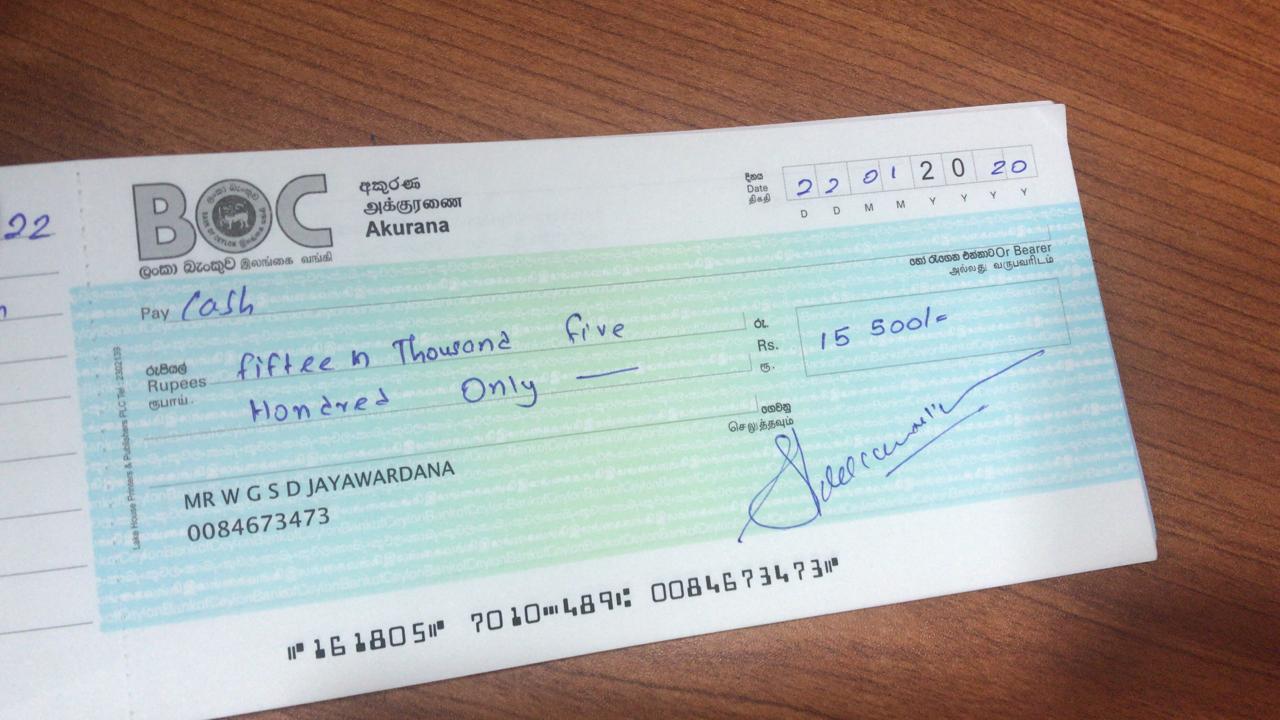 22
BOC
ලංකා බැංකුව இலங்கை வங்கி
අකුරණ
அக்குரணை
Akurana
දිනය
Date
திகதி
2 2 0 1 2 0 2 0
D D M M Y Y Y Y
Pay Cash
හෝ රැගෙන එන්නාට Or Bearer
அல்லது வருபவரிடம்
රුපියල්
Rupees
ரூபாய்
fifteen Thousand five
Hondred Only —
රු.
Rs.
ரூ.
15 500/=
ගෙවනු
செலுத்தவும்
MR W G S D JAYAWARDANA
0084673473
Lake House Printers & Publishers PLC Tel : 2302139
⑈161805⑈ 7010⑉489⑆ 0084673473⑈